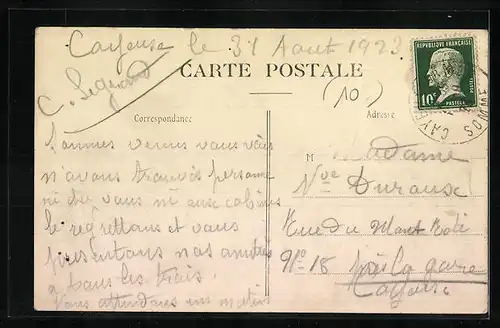 Cayeux le 31 Aout 1923
C. Legrand
CARTE POSTALE
(10)
RÉPUBLIQUE FRANÇAISE
POSTES
10c
PASTEUR
CAYE SOMME
Correspondance
Adresse
Sommes venus vous voir
n'avons trouvés personne
ni chez vous ni aux cabines
le regrettons et vous
présentons nos amitiés
à tous les trois.
Vous attendons un matin
M Madame
Vve
Rue du Mont
No 18 près la gare
Cayeux